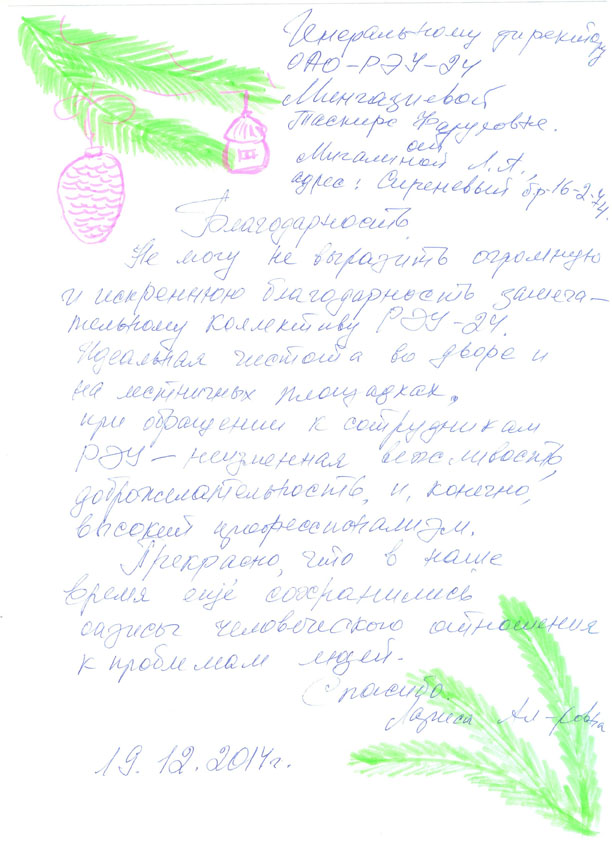 Генеральному директору
ОАО-РЭУ-24
Мингазиевой
Таскире Фаруховне.
от
Мигалиной Л.А.,
адрес: Сиреневый бр-16-2-74.
Благодарность.
Не могу не выразить огромную
и искреннюю благодарность замеча-
тельному коллективу РЭУ-24.
Идеальная чистота во дворе и
на лестничных площадках,
при обращении к сотрудникам
РЭУ – неизменная вежливость,
доброжелательность, и, конечно,
высокий профессионализм.
Прекрасно, что в наше
время ещё сохранились
оазисы человеческого отношения
к проблемам людей.
Спасибо.
Лариса Ал-ровна
19.12.2014г.